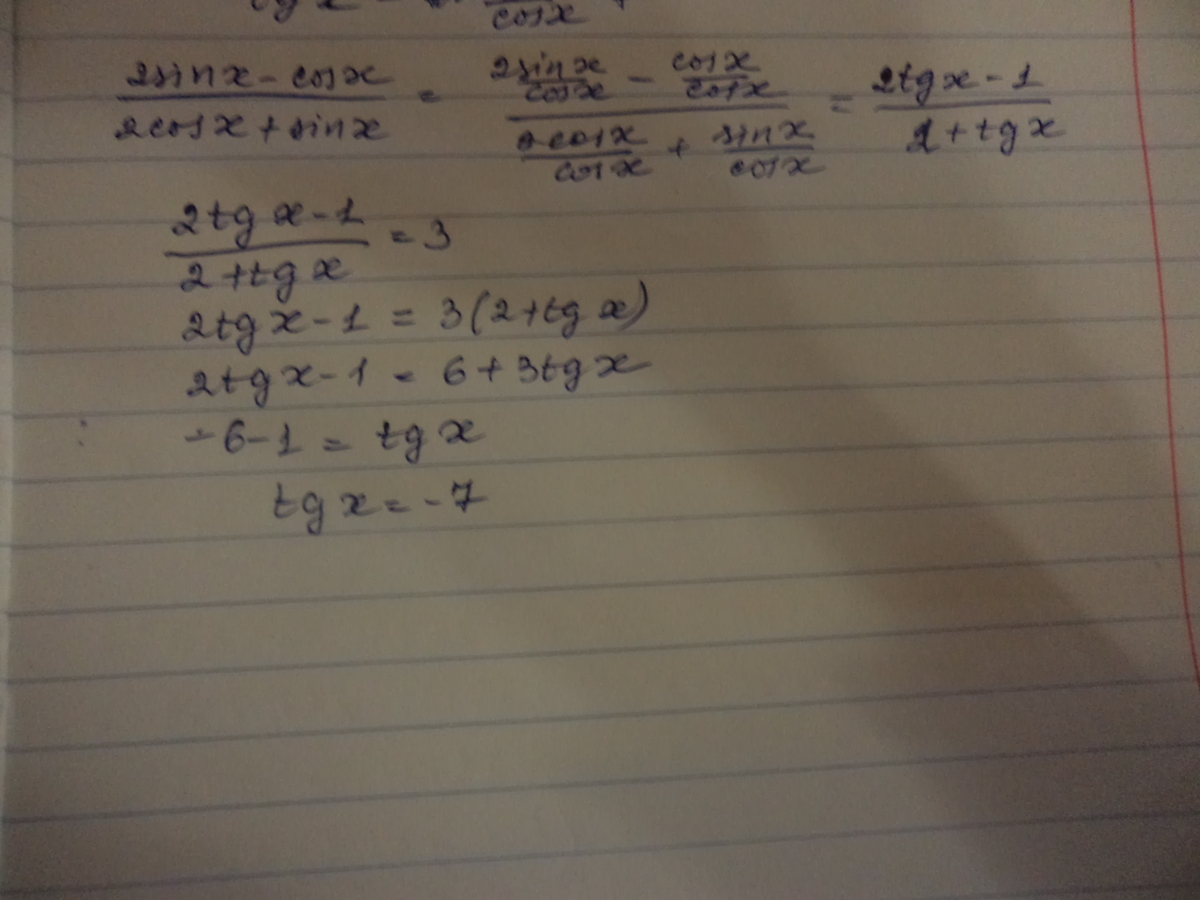 cosx
2sinx - cosx / 2cosx + sinx = 2sinx/cosx - cosx/cosx / 2cosx/cosx + sinx/cosx = 2tgx - 1 / 2 + tgx
2tgx - 1 / 2 + tgx = 3
2tgx - 1 = 3(2 + tgx)
2tgx - 1 = 6 + 3tgx
-6 - 1 = tgx
tgx = -7